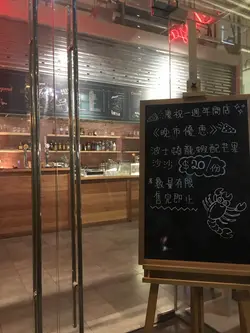 慶祝一週年開店
《晚市優惠》
波士頓龍蝦配芒果
沙沙 $20/份
*數量有限
售完即止